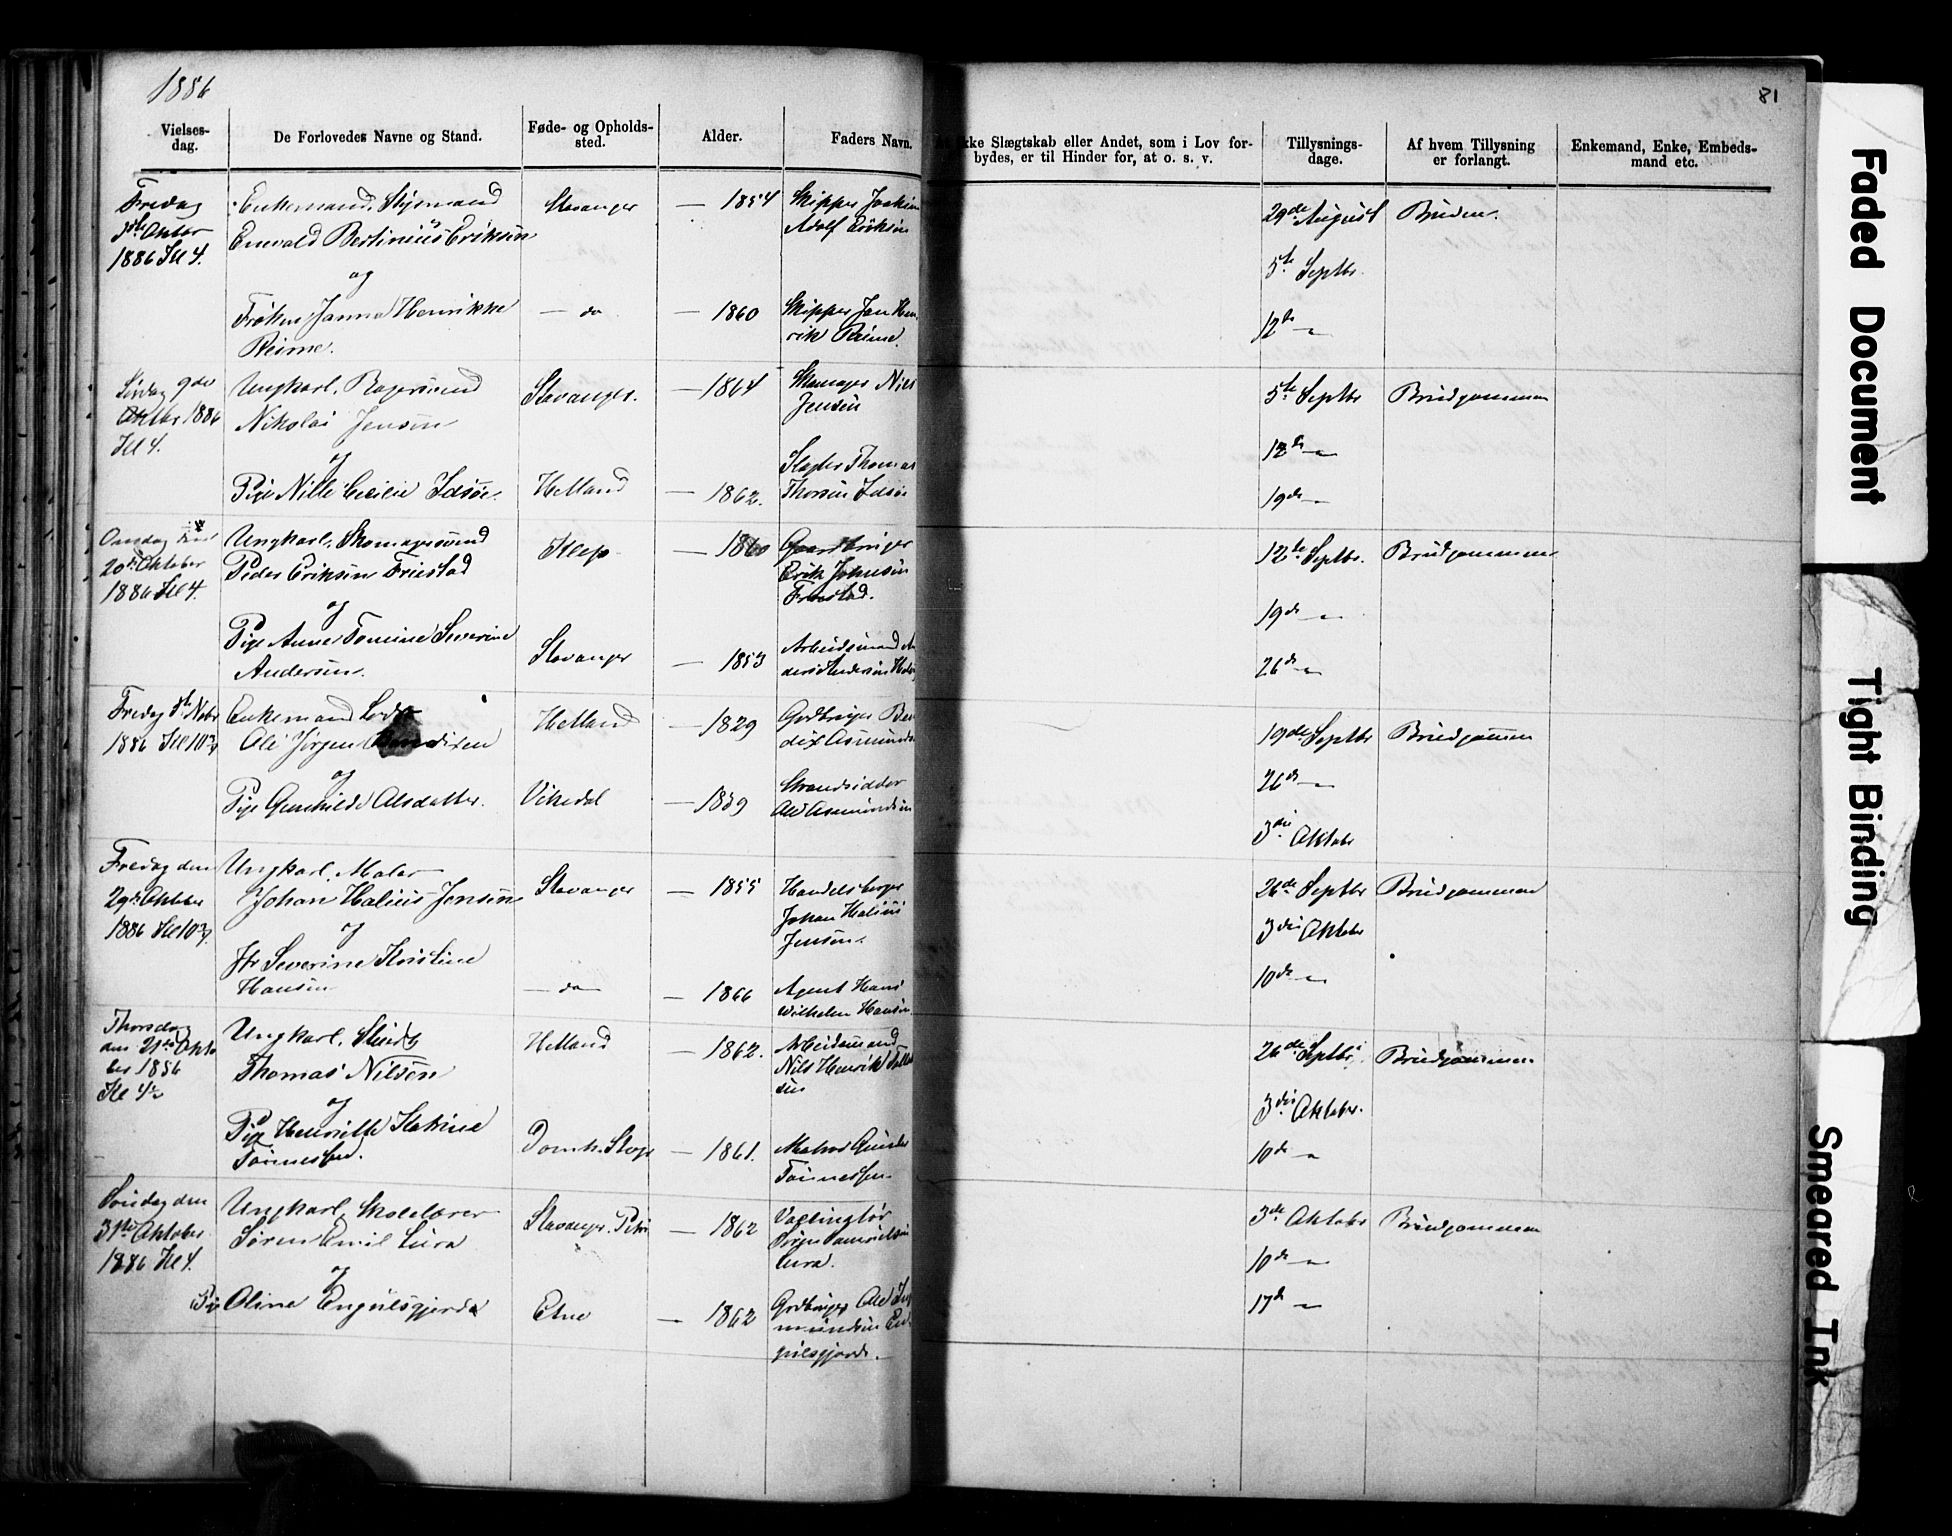 1886
81
Vielses-
dag.
De Forlovedes Navne og Stand.
Føde- og Opholds-
sted.
Alder.
Faders Navn.
ikke Slægtskab eller Andet, som i Lov for-
bydes, er til Hinder for, at o. s. v.
Tillysnings-
dage.
Af hvem Tillysning
er forlangt.
Enkemand, Enke, Embeds-
mand etc.
Fredag
1886 Kl 4.
Enkemand, Styrmand
Enevald Bertinius Eriksen
og
Frøken Janna Henrikke
Reime.
Stavanger
— do
— 1854
— 1860
Skipper Joakim
Adolf Eriksen
Skipper Jan Hen
rik Reime.
29de August
5te Septbr.
12te —
Bruden.
9de
Oktbr. 1886
Kl 4.
Ungkarl,
Nikolai Jensen
og
Pige Nille Cecilie Idsøe.
Stavanger.
Helland
— 1864
— 1862.
Skomager Niels
Jensen
Slagter Thomas
Thorsen Idsøe
5te Septbr
12te —
19de —
Brudgommen
Onsdag
20de Oktober
1886 Kl 4.
Ungkarl, Skomagersvend
Peder Eriksen Friestad
og
Pige Anne Tomine Severine
Andersen.
Klep
Stavanger
— 1860
— 1853
Gaardbruger
Erik Johnsen
Friestad.
Arbeidsmand An
ders Andersen
12te Septbr.
19de —
26de —
Brudgommen
Fredag
1886 Kl 10
Enkemand Lods
Ole Jørgen Bendixen
og
Pige Gunhilde Olsdatter.
Helland
Vikedal
— 1829
— 1839
Gdbruger Ben
dix Asmunds
Strandsidder
Ole Asmundsen
19de Septbr
26de —
3die Oktobr
Brudgommen
Fredag den
29de Oktober
1886 Kl 10
Ungkarl, Maler
Johan Halius Jensen
og
Jfr Severine Kristine
Hansen
Stavanger
— do
— 1855
— 1866
Handelsborger
Johan Halius
Jensen.
Agent Hans
Wilhelm Hansen.
26de Septbr
3die Oktober
10de —
Brudgommen
Thorsdag
den 21de Okto
ber 1886
Kl 4
Ungkarl,
Thomas Nilsen
og
Pige Henriette Katrine
Tønnessen.
Helland
Domk. Stvgr
— 1862.
— 1861.
Arbeidsmand
Nils Henrik
sen
Matros
Tønnessen.
26de Septbr.
3die Oktober.
10de —
Brudgommen
Søndag den
31te Oktober
1886 Kl 4.
Ungkarl, Skolelærer
Søren Emil Lura
og
Pige Oline Engulsgjerde
Stavanger. Petri
Etne
— 1862
— 1862
Lura.
Gdbruger Ole
mundsen En
gulsgjerde.
3de Oktobr
10de —
17de —
Brudgommen
Faded Document
Tight Binding
Smeared Ink